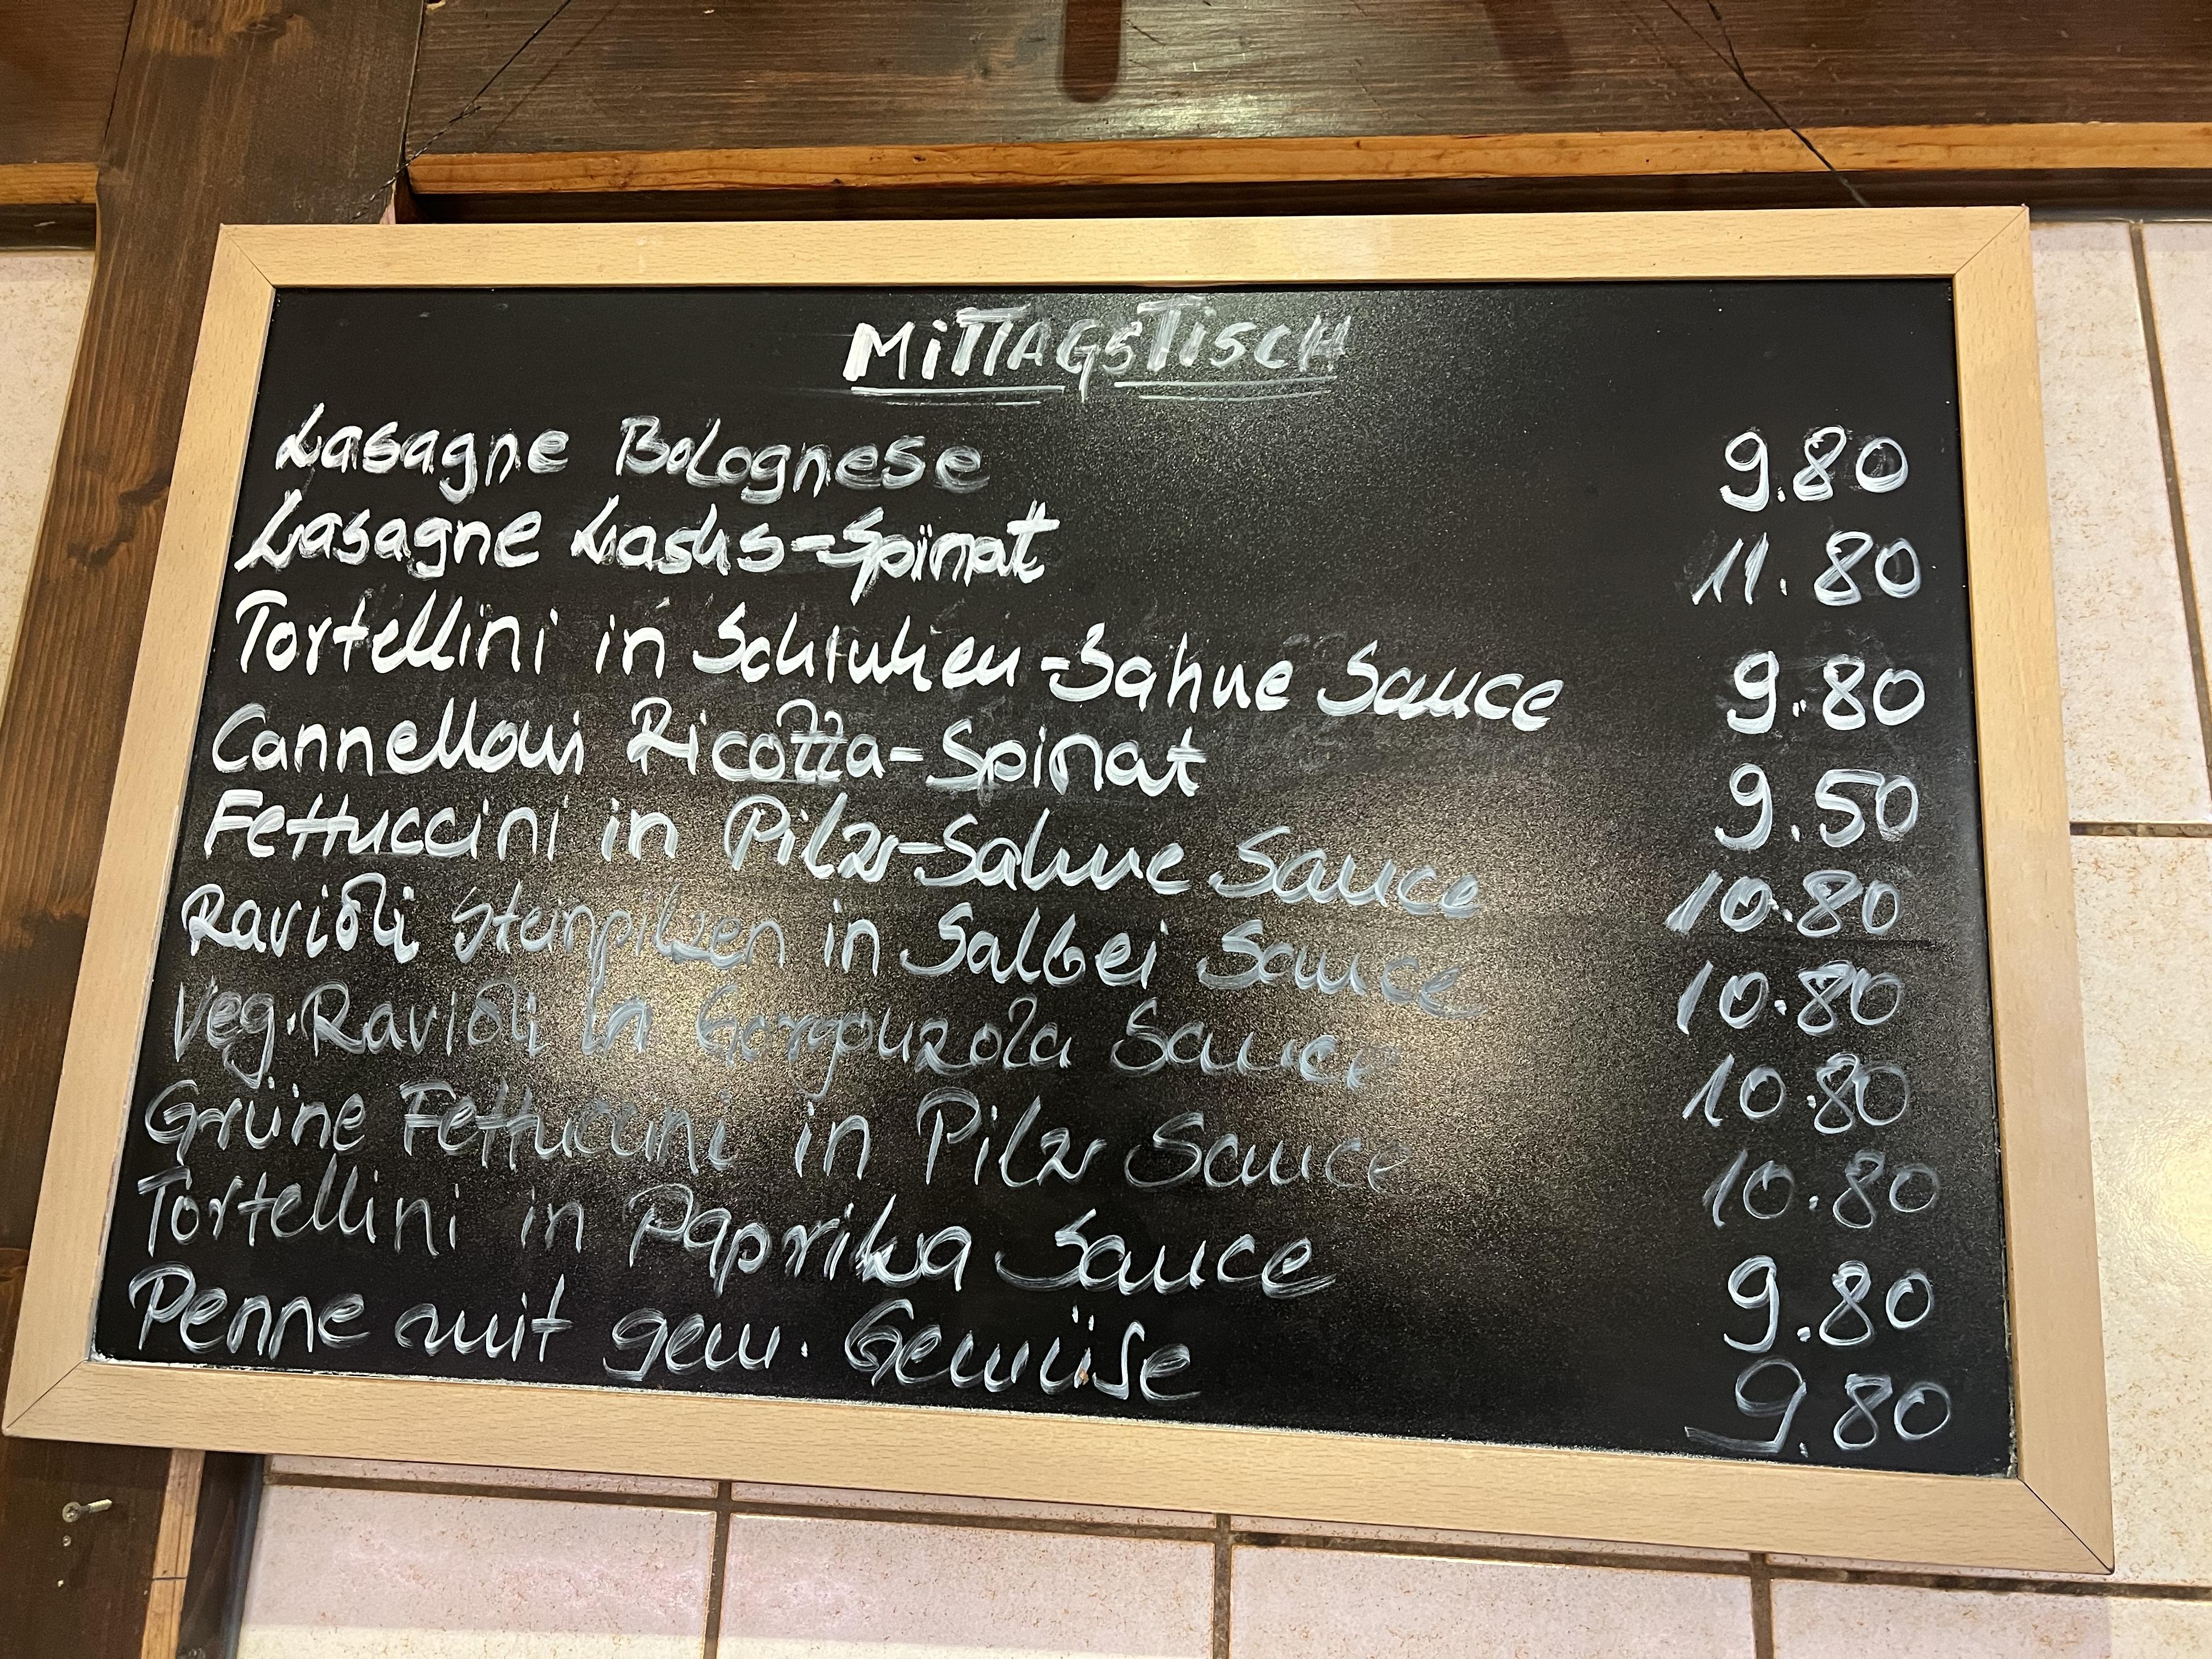 MITTAGSTISCH
Lasagne Bolognese 9.80
Lasagne Lachs-Spinat 11.80
Tortellini in Schinken-Sahne Sauce 9.80
Cannelloni Ricotta-Spinat 9.50
Fettuccini in Pilz-Sahne Sauce 10.80
Ravioli Steinpilzen in Salbei Sauce 10.80
Veg. Ravioli in Gorgonzola Sauce 10.80
Grüne Fettuccini in Pilz Sauce 10.80
Tortellini in Paprika Sauce 9.80
Penne mit gem. Gemüse 9.80